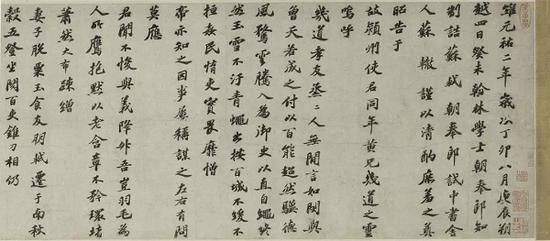 維元祐二年歲次丁卯八月庚辰朔
越四日癸未翰林學士朝奉郎知
制誥蘇軾朝奉郎試中書舍
人蘇轍謹以清酌庶羞之奠
昭告于
故潁州使君同年黃兄幾道之靈
嗚呼
幾道孝友烝々人無閒言如閔與
曾天若成之付以百能超然驥德
風騖雲騰入為御史以直自繩終
然玉雪不汙青蠅出按百城不緩不
姦民惰吏實畏靡憎
帝亦知之因事屢稱謀之左右有問
莫應
君聞不悛與義降升吾豈羽毛為
人所鷹抱默以老含章不矜環堵
蕭然大布疎繒
妻子脫粟玉食友朋我遷于南秋
穀五登坐閱百吏錐刀相仍